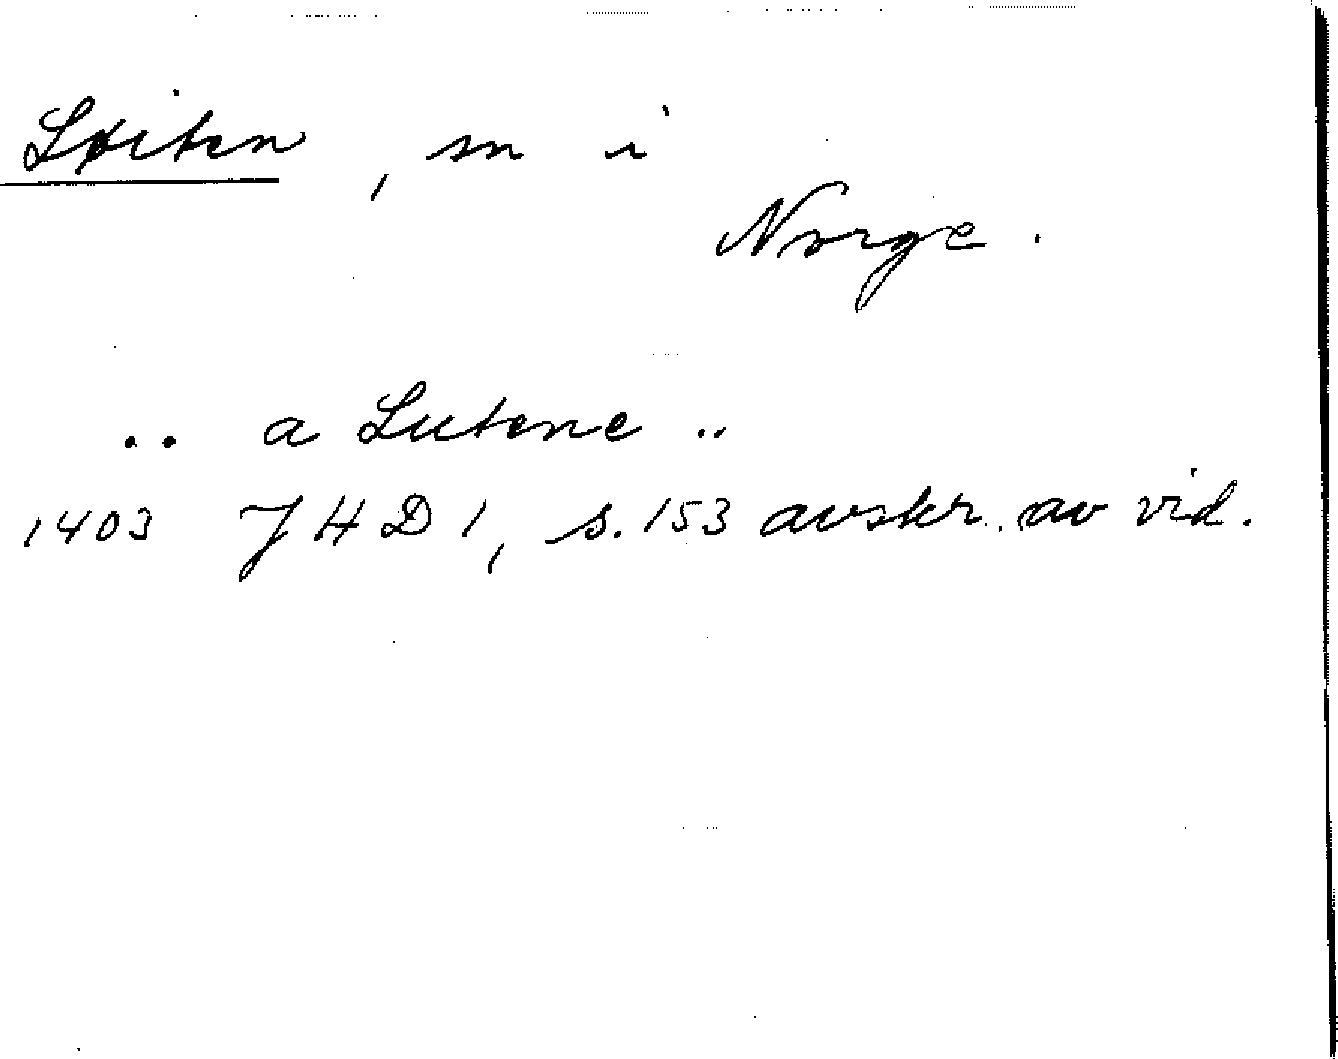 Løiten, sn i
Norge.
.. a Lutene ..
1403 JHD 1, s. 153 avskr. av vid.